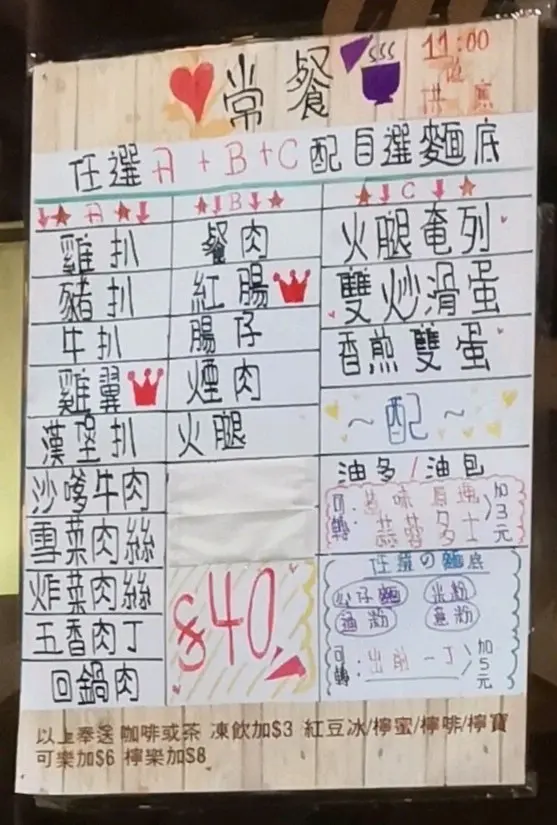 常餐
11:00
任選A+B+C配自選麵底
A
雞扒
豬扒
牛扒
雞翼
漢堡扒
沙嗲牛肉
雪菜肉絲
炸菜肉絲
五香肉丁
回鍋肉
B
餐肉
紅腸
腸仔
煙肉
火腿
$40
C
火腿奄列
雙炒滑蛋
香煎雙蛋
~配~
油多/油包
可轉:
蒜蓉多士
加3元
任選の麵底
公仔麵
米粉
油粉
意粉
可轉:出前一丁
加5元
以上奉送 咖啡或茶 凍飲加$3 紅豆冰/檸蜜/檸啡/檸寶
可樂加$6 檸樂加$8